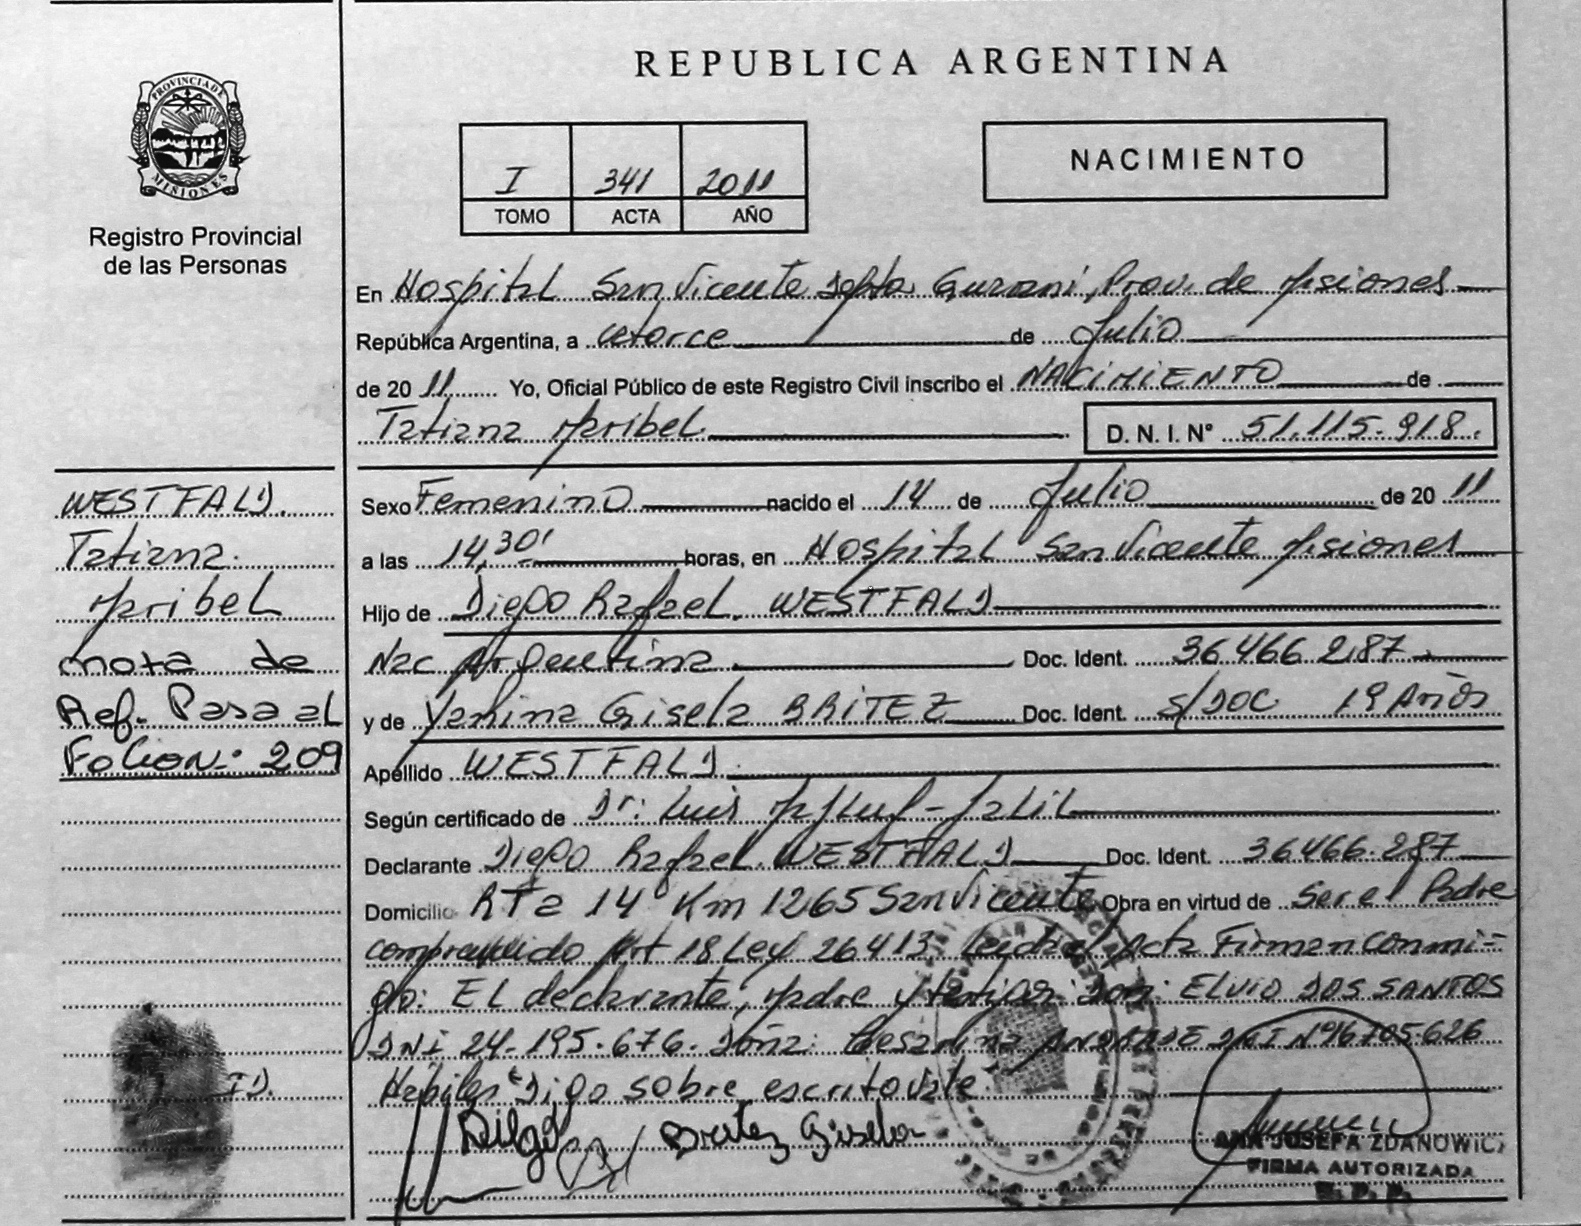 REPUBLICA ARGENTINA
PROVINCIA DE
MISIONES
Registro Provincial
de las Personas
I 341 2011
TOMO ACTA AÑO
NACIMIENTO
En Hospital San Vicente Depto Guarani, Prov. de Misiones
República Argentina, a catorce de Julio
de 2011 Yo, Oficial Público de este Registro Civil inscribo el NACIMIENTO de
Tatiana Maribel D. N. I. N° 51.115.918.
WESTFALD.
Tatiana
Maribel
nota de
Ref. Pasa al
Folion: 209
Sexo Femenino nacido el 14 de Julio de 2011
a las 14,30' horas, en Hospital San Vicente Misiones
Hijo de Diego Rafael WESTFALD
Nac Argentina Doc. Ident. 36.466.287
y de Yanina Gisela BRITEZ Doc. Ident. s/DOC 19 Años
Apellido WESTFALD
Según certificado de Dr: Luis
Declarante Diego Rafael WESTFALD Doc. Ident. 36.466.287
Domicilio RTa 14 Km 1265 San Vicente Obra en virtud de Ser el Padre
comprendido Art 18 Ley 26413 Leida el Acta Firman conmi-
go: El declarante, Madre y testigos: Don: ELVIO DOS SANTOS
DNI 24-195-676. Doña: ANDRADE DNI N°
Habiles Digo sobre escrito vale
Britez Gisela
ANA JOSEFA ZDANOWICZ
FIRMA AUTORIZADA
R. P. P.